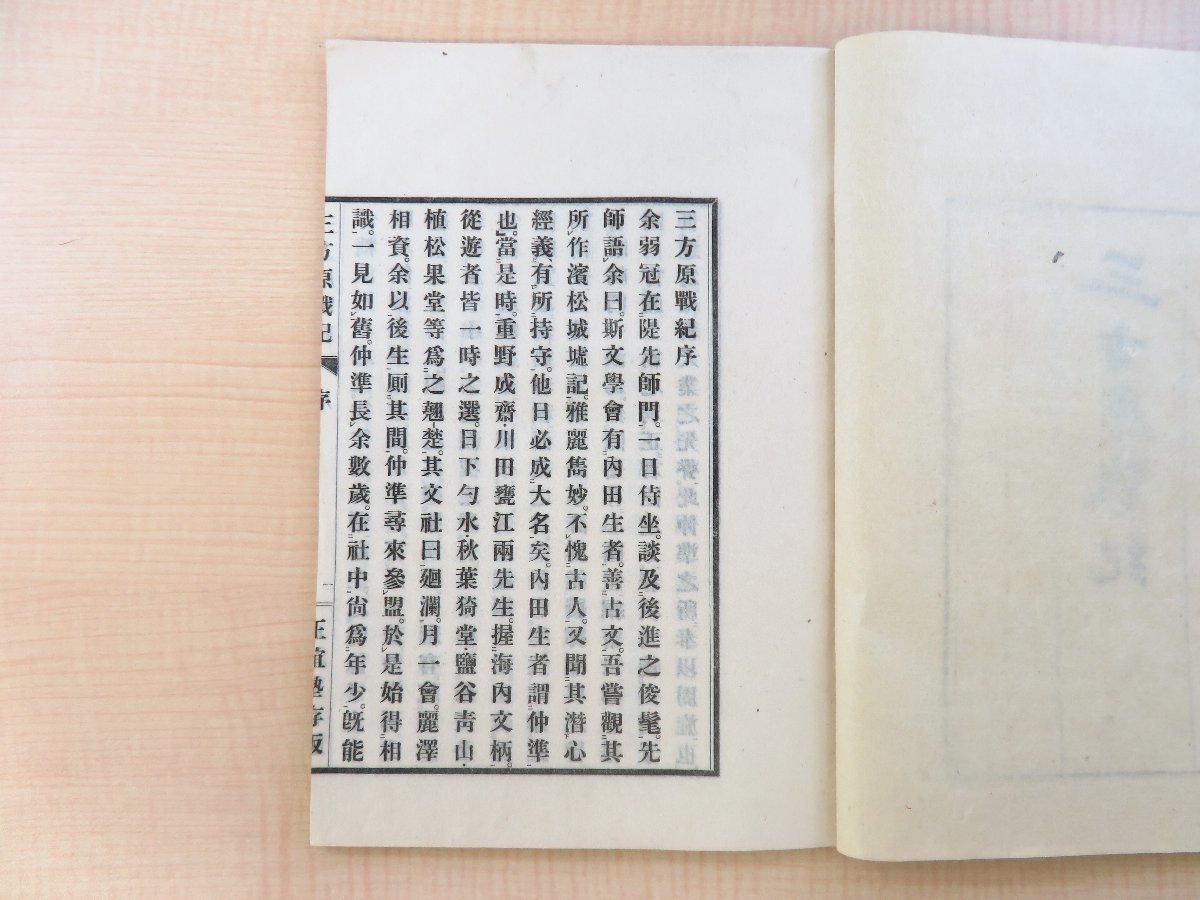 三方原戰紀序
余弱冠在隄先師門。一日侍坐。談及後進之俊髦。先
師語余曰。斯文學會有內田生者。善古文。吾嘗觀其
所作濱松城墟記。雅麗雋妙。不愧古人。又聞其潛心
經義、有所持守。他日必成大名矣。內田生者謂仲準
也。當是時。重野成齋・川田甕江兩先生。握海內文柄。
從遊者皆一時之選。日下勻水・秋葉猗堂・鹽谷靑山・
植松果堂等爲之翹楚。其文社曰廻瀾。月一會。麗澤
相資。余以後生厠其間。仲準尋來參盟。於是始得相
識。一見如舊。仲準長余數歲。在社中尙爲年少。旣能
三方原戰紀 序 一 正誼塾存版